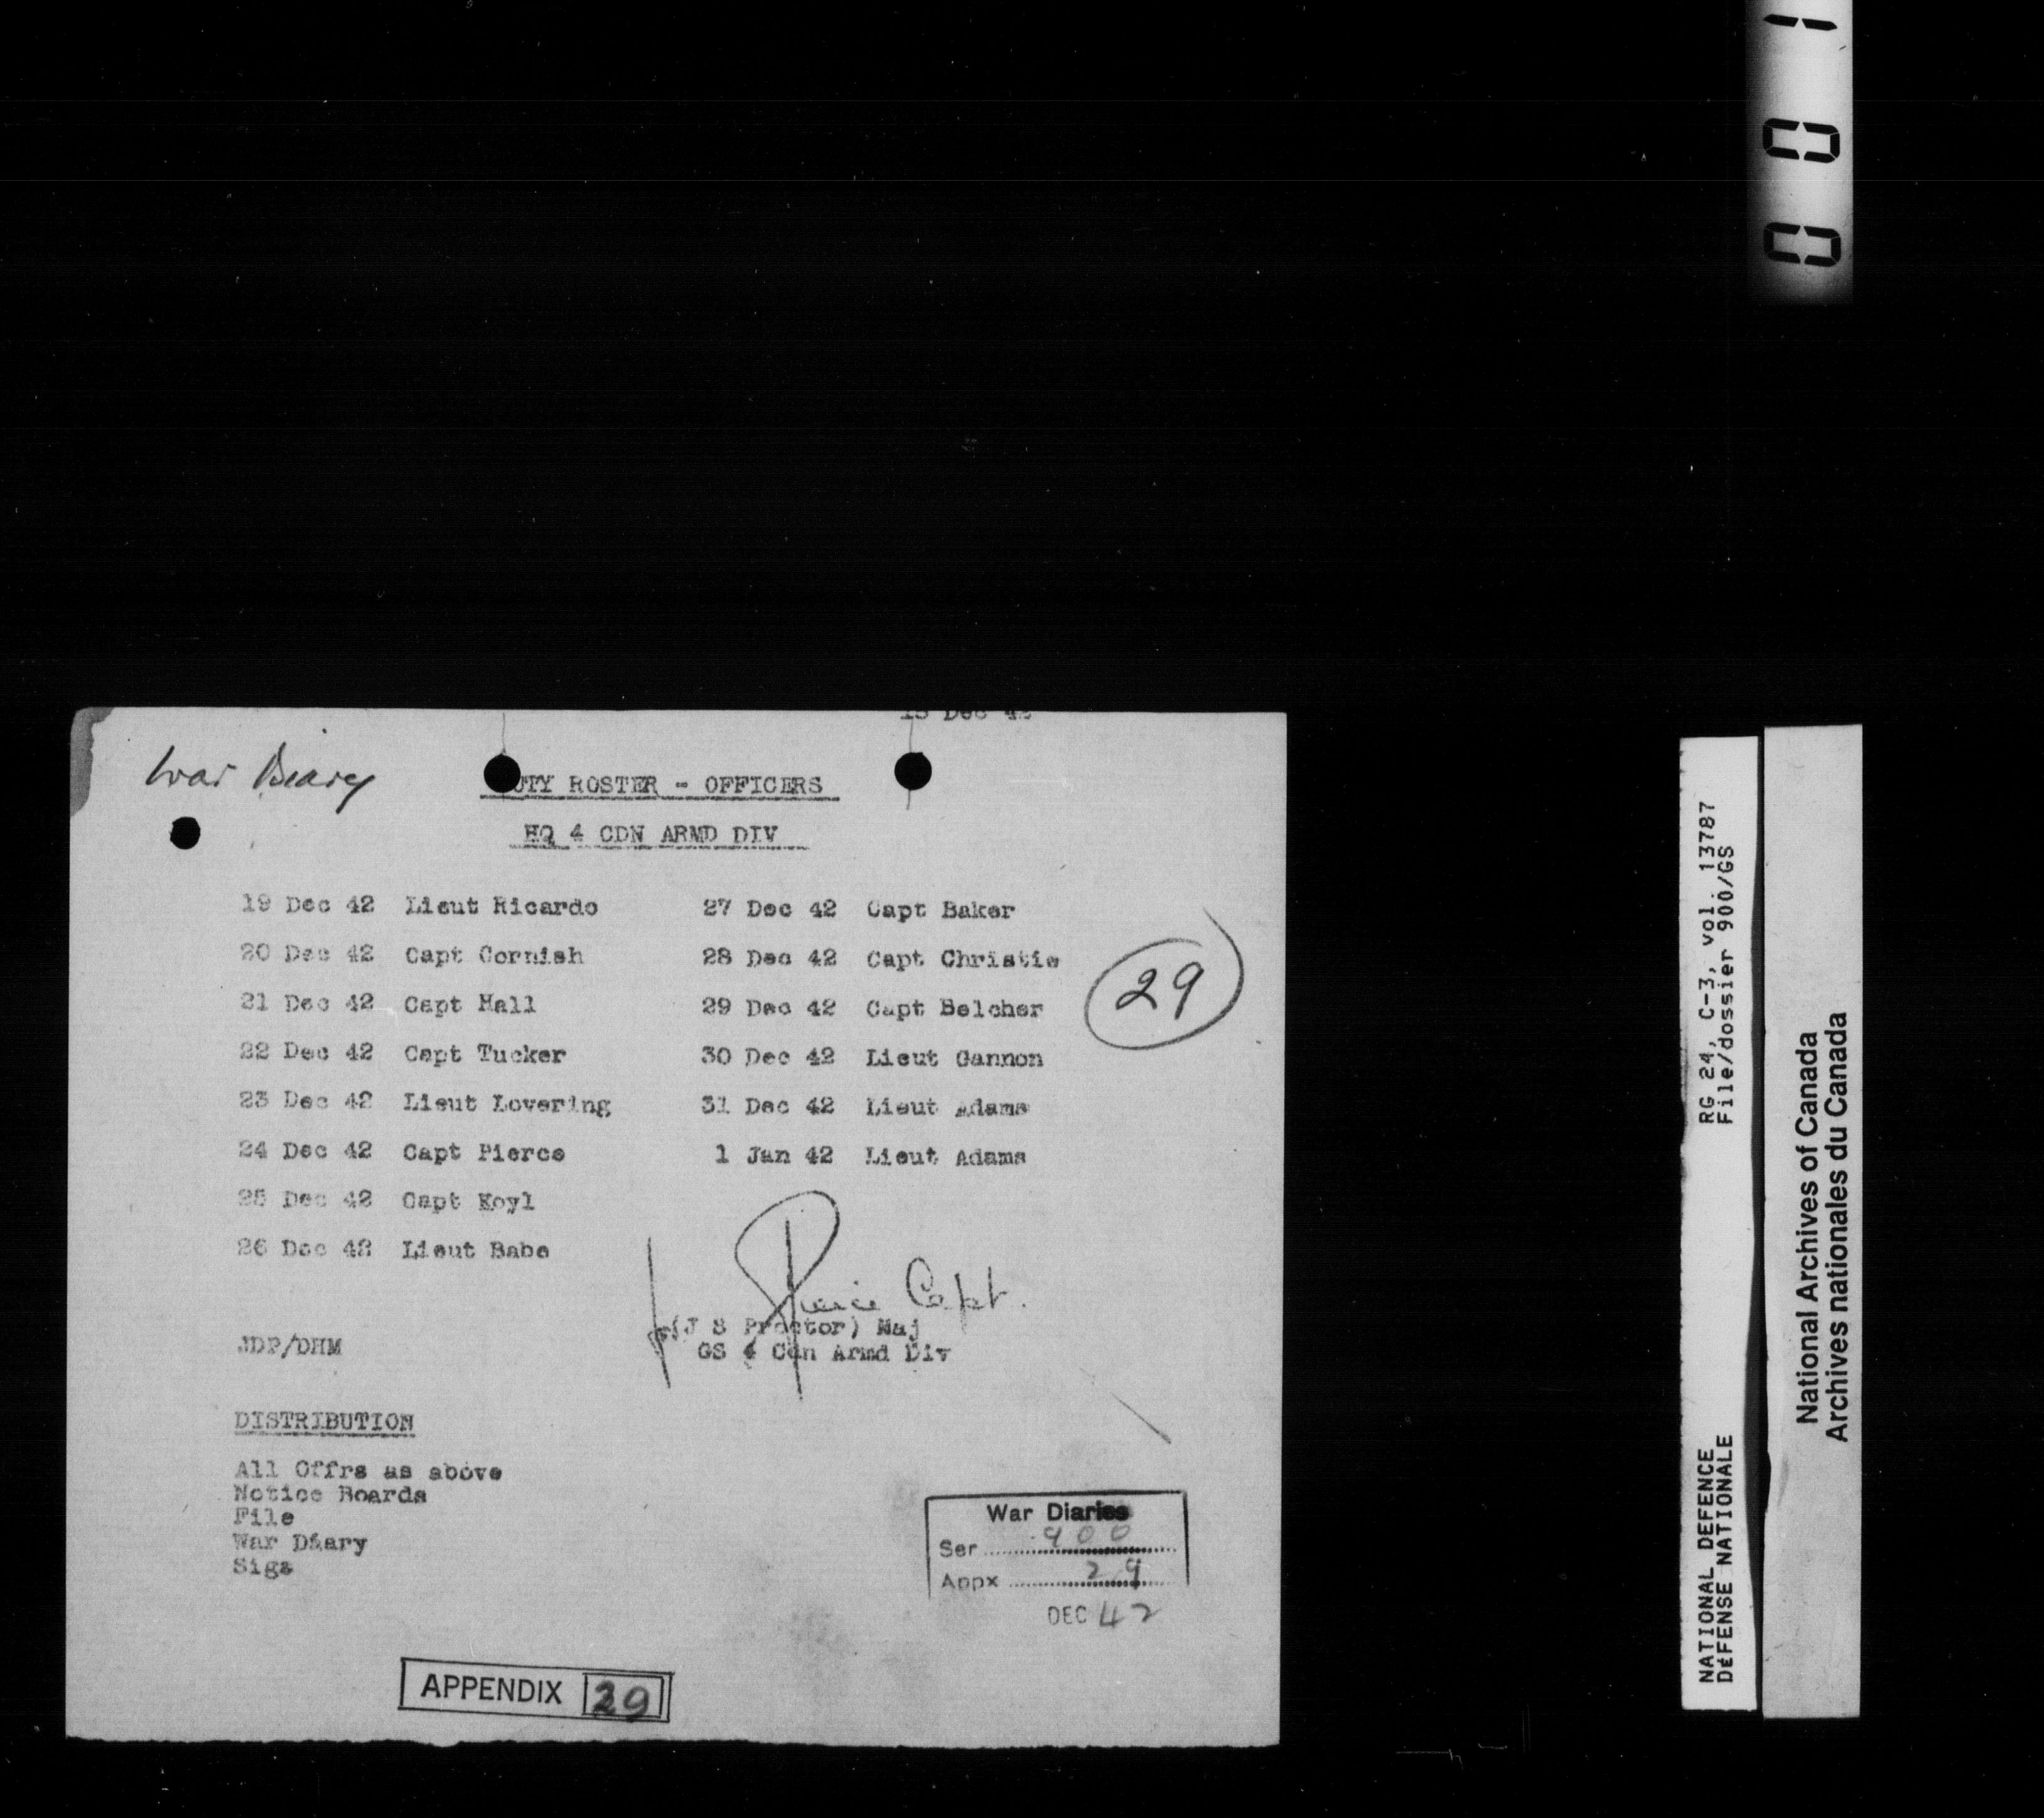 001
War Diary
DUTY ROSTER - OFFICERS
HQ 4 CDN ARMD DIV
19 Dec 42 Lieut Ricardo
20 Dec 42 Capt Cornish
21 Dec 42 Capt Hall
22 Dec 42 Capt Tucker
23 Dec 42 Lieut Lovering
24 Dec 42 Capt Pierce
25 Dec 42 Capt Koyl
26 Dec 42 Lieut Babe
27 Dec 42 Capt Baker
28 Dec 42 Capt Christie
29 Dec 42 Capt Belcher
30 Dec 42 Lieut Gannon
31 Dec 42 Lieut Adams
1 Jan 42 Lieut Adams
29
Capt.
(J S Proctor) Maj
GS 4 Cdn Armd Div
JDP/DHM
DISTRIBUTION
All Offrs as above
Notice Boards
File
War Diary
Sigs
War Diaries
Ser 900
Appx 29
DEC 42
APPENDIX 29
RG 24, C-3, vol. 13787
File/dossier 900/GS
NATIONAL DEFENCE
DÉFENSE NATIONALE
National Archives of Canada
Archives nationales du Canada